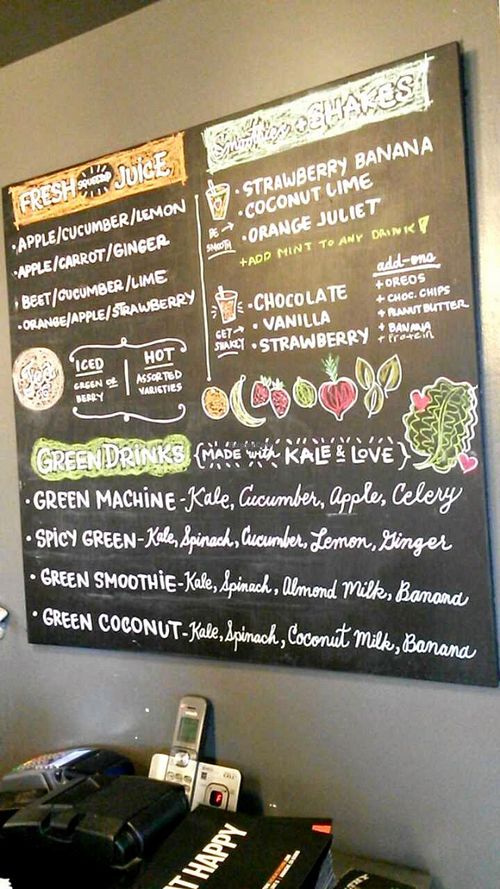 FRESH SQUEEZED JUICE
• APPLE/CUCUMBER/LEMON
• APPLE/CARROT/GINGER
• BEET/CUCUMBER/LIME
• ORANGE/APPLE/STRAWBERRY
Tea
ICED
GREEN OR
BERRY
HOT
ASSORTED
VARIETIES
Smoothies + SHAKES
BE
SMOOTH
• STRAWBERRY BANANA
• COCONUT LIME
• ORANGE JULIET
+ADD MINT TO ANY DRINK!
GET
SHAKEY
• CHOCOLATE
• VANILLA
• STRAWBERRY
add-ons
+ OREOS
+ CHOC. CHIPS
+ PEANUT BUTTER
+ BANANA
+ Protein
GREEN DRINKS {MADE with KALE & LOVE}
• GREEN MACHINE - Kale, Cucumber, Apple, Celery
• SPICY GREEN - Kale, Spinach, Cucumber, Lemon, Ginger
• GREEN SMOOTHIE - Kale, Spinach, Almond Milk, Banana
• GREEN COCONUT - Kale, Spinach, Coconut Milk, Banana
AT HAPPY